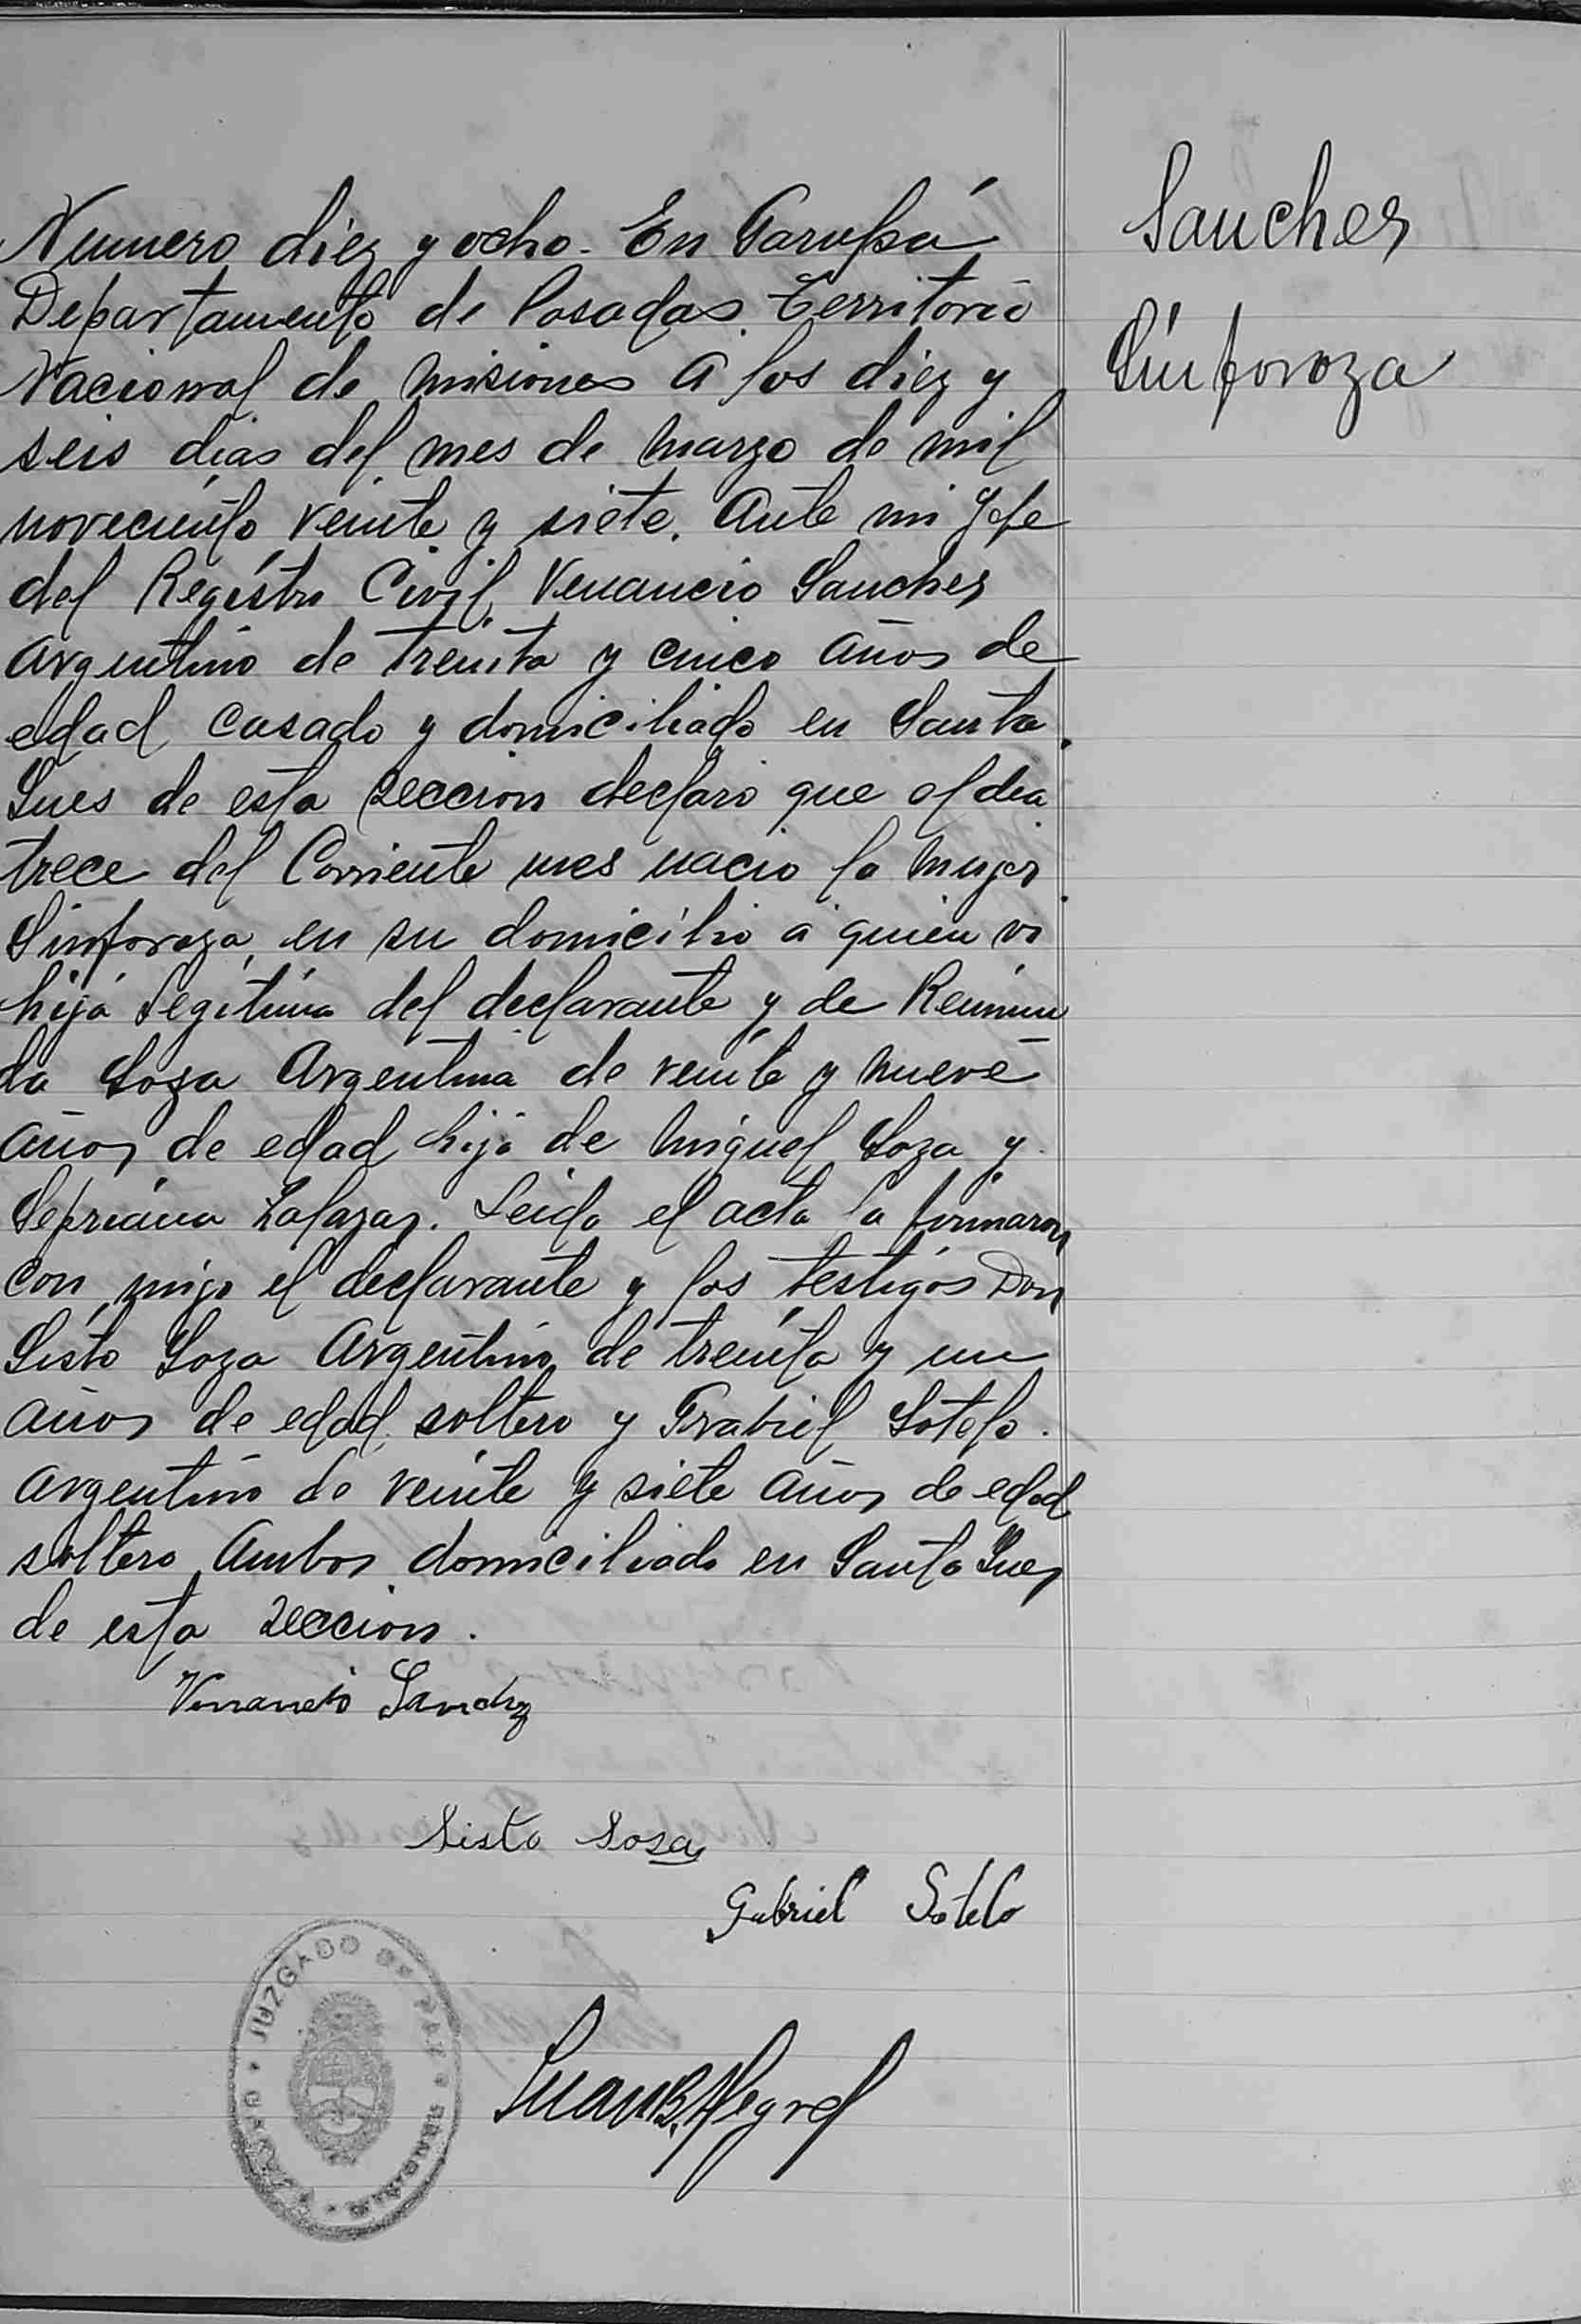 Sanches
Sinforoza
Numero diez y ocho. En Garupá
Departamento de Posadas Territorio
Nacional de Misiones a los diez y
seis dias del mes de Marzo de mil
novecinto veinte y siete. Ante mi Jefe
del Registro Civil, Venancio Sanches
Argentino de treinta y cinco años de
edad, casado y domiciliado en Santa
Ines de esta seccion declaro que el dia
trece del Corriente mes nacio la Mujer
Sinforoza, en su domicilio a quien vi
hija legitima del declarante y de Reimun
da Soza Argentina de veinte y nueve
años de edad hija de Miguel Soza y
Sepriana Zalazar. Leida el acta la firmaron
con migo el declarante y los testigos Don
Sisto Soza Argentino de treinta y un
años de edad soltero y Grabiel Sotelo.
Argentino de veinte y siete años de edad
soltero Ambos domiciliado en Santa Ines
de esta seccion.
Venancio Sanchez
Sisto Sosa
Gabriel Sotelo
Juan B. Alegre
JUZGADO DE PAZ